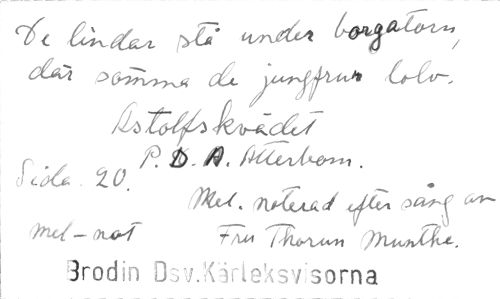 De lindar stå under borgatorn,
där somma de jungfrur tolv.
Astolfskvädet
P. D. A. Atterbom.
Sida 20.
Mel. noterad efter sång av
mel-not Fru Thorun Munthe.
Brodin Dsv.Kärleksvisorna